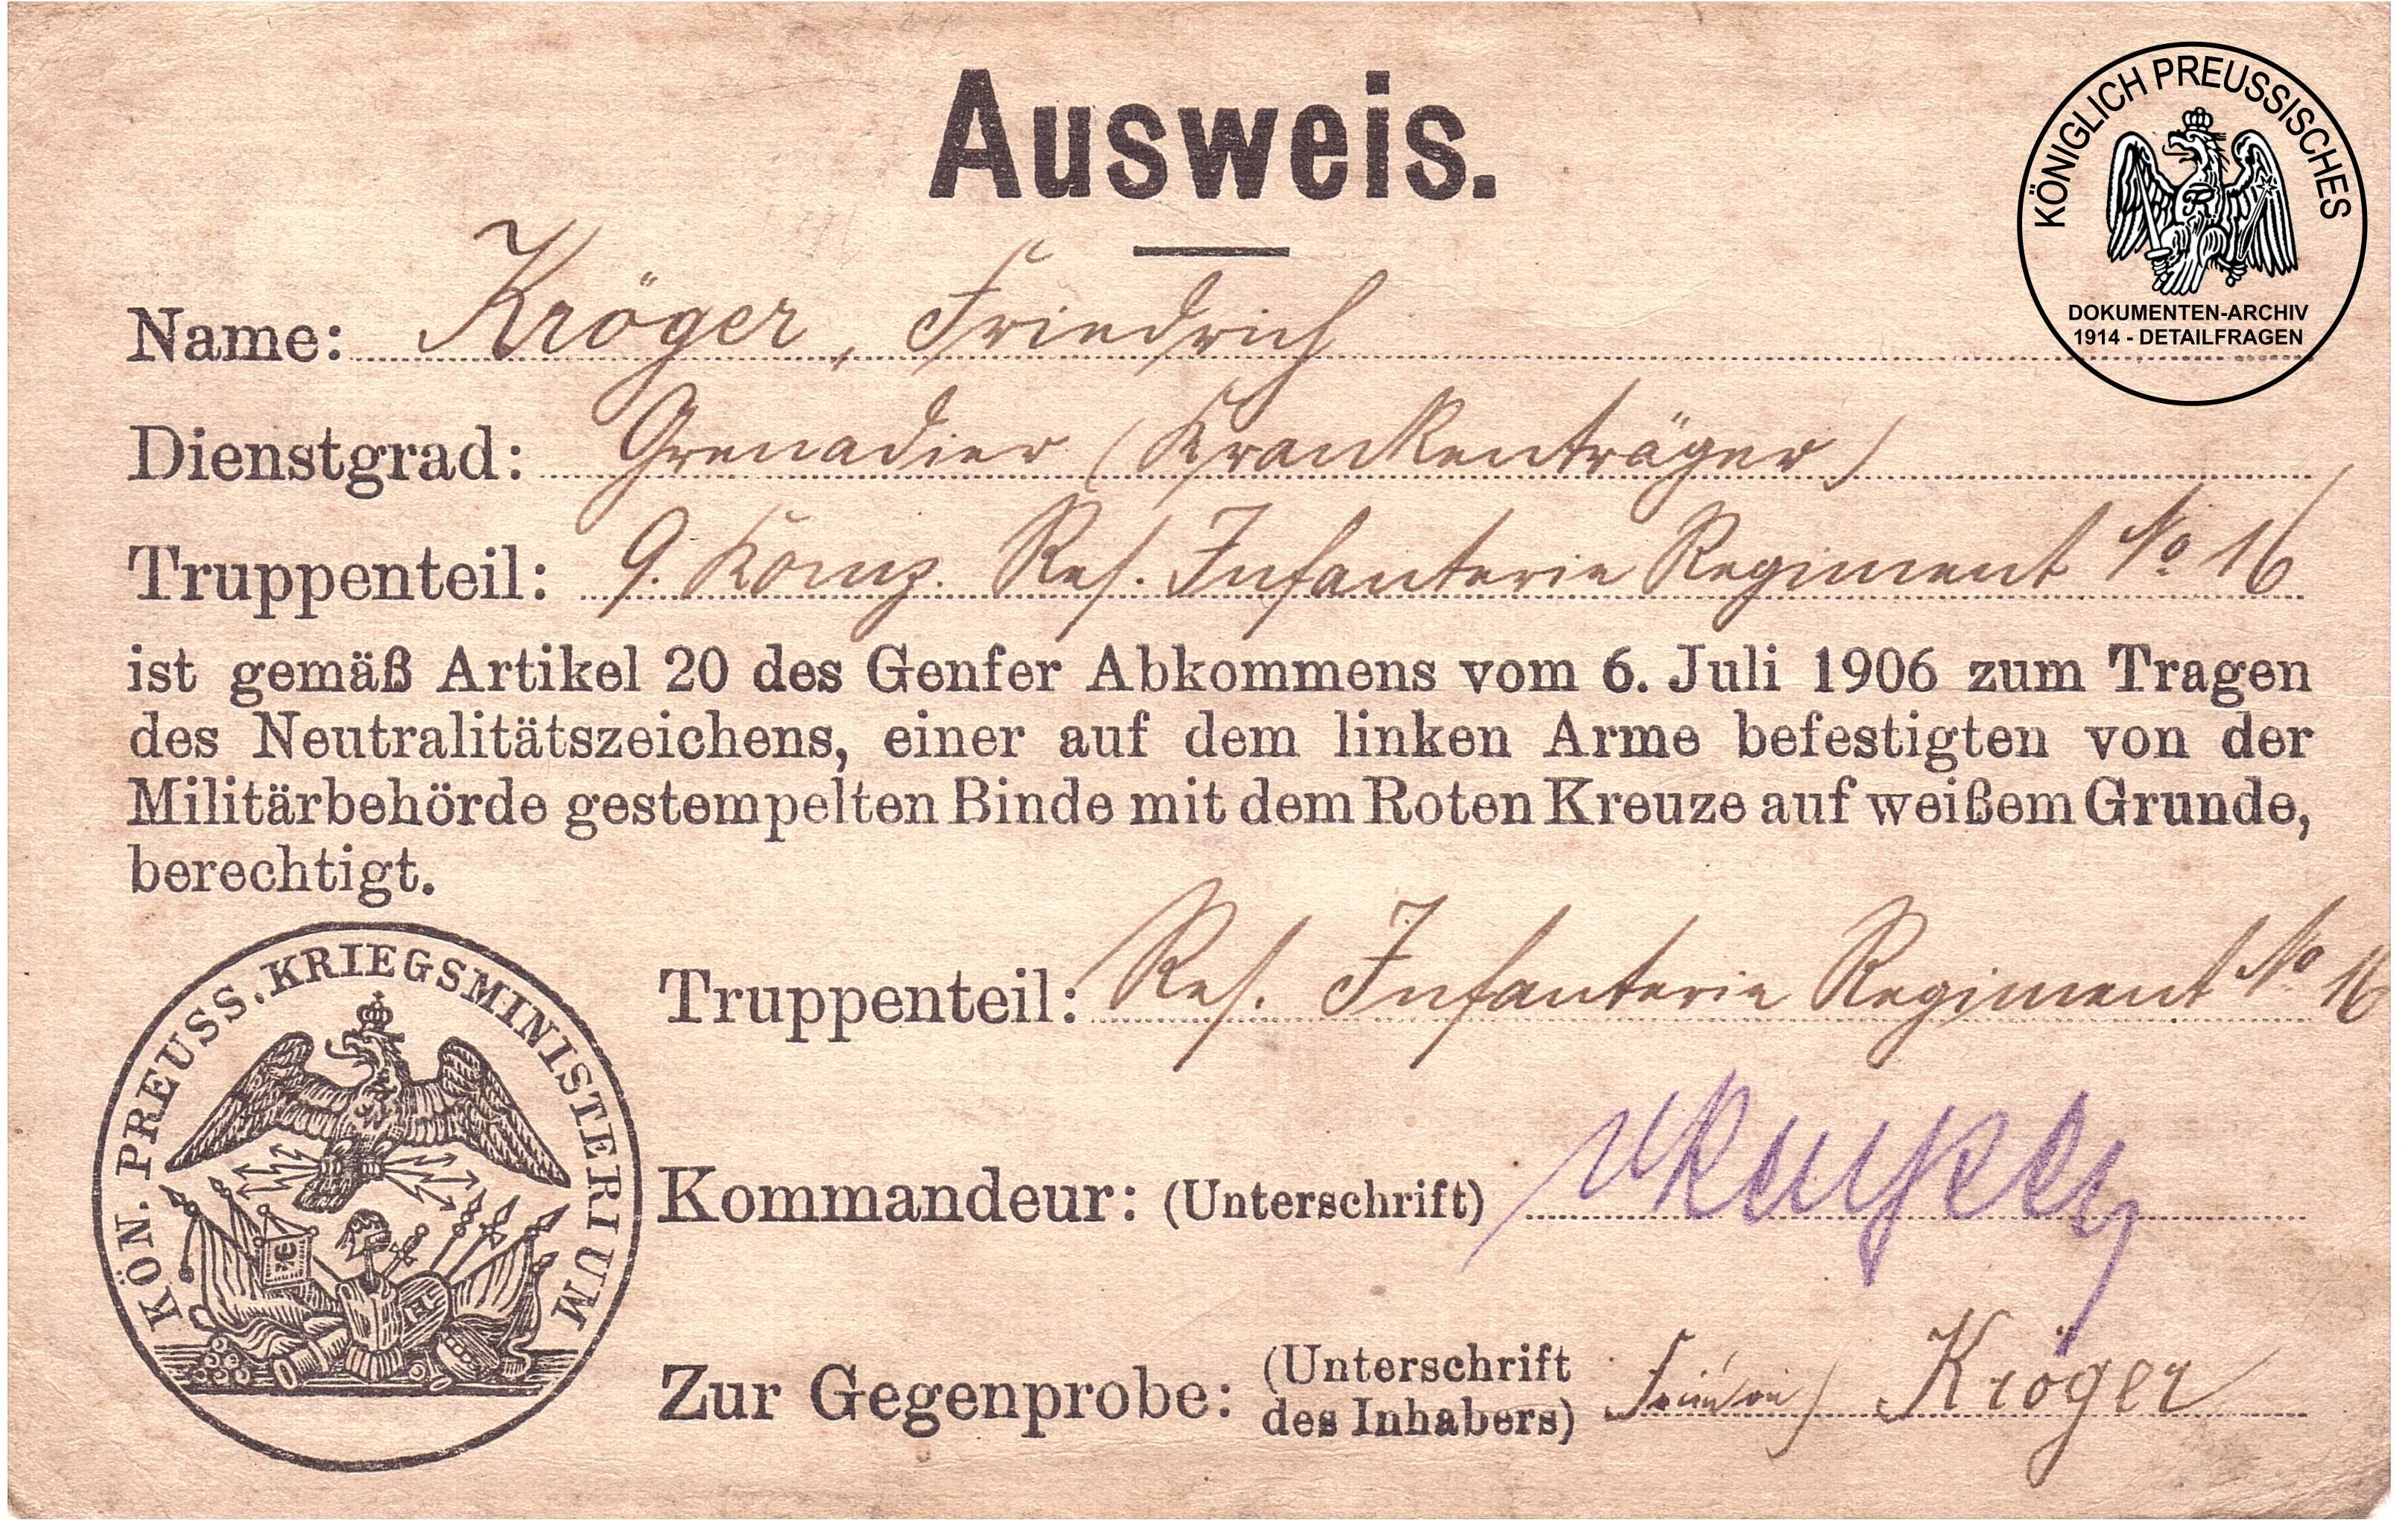 Ausweis.
KÖNIGLICH PREUSSISCHES
DOKUMENTEN-ARCHIV
1914 - DETAILFRAGEN
Name: Kröger, Friedrich
Dienstgrad: Grenadier (Krankenträger)
Truppenteil: 9. Komp. Res. Infanterie Regiment No 16
ist gemäß Artikel 20 des Genfer Abkommens vom 6. Juli 1906 zum Tragen
des Neutralitätszeichens, einer auf dem linken Arme befestigten von der
Militärbehörde gestempelten Binde mit dem Roten Kreuze auf weißem Grunde,
berechtigt.
KÖN. PREUSS. KRIEGSMINISTERIUM
Truppenteil: Res. Infanterie Regiment No 16
Kommandeur: (Unterschrift)
Zur Gegenprobe: (Unterschrift
des Inhabers) Kröger